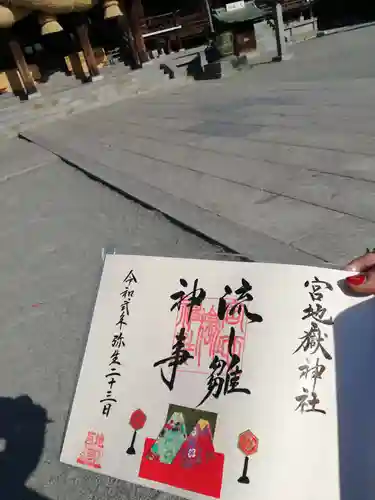 宮地嶽神社
流し雛
神事
令和年弥生二十三日